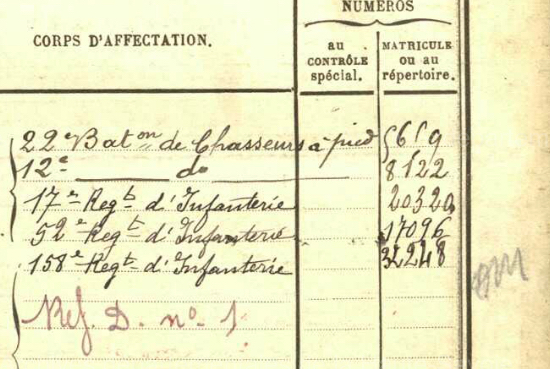 NUMÉROS
CORPS D'AFFECTATION.
au CONTRÔLE spécial.
MATRICULE ou au répertoire.
22e Baton de Chasseurs à pied 5619
12e do 8122
17e Regt d'Infanterie 20320
52e Regt d'Infanterie 17096
158e Regt d'Infanterie 32248
Ref. D. no 1